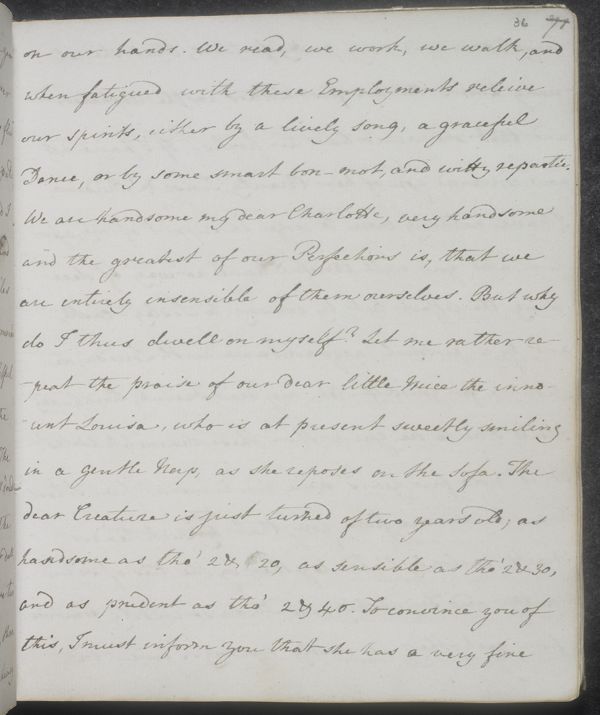 36 77
on our hands. We read, we work, we walk, and
when fatigued with these Employments releive
our spirits, either by a lively song, a graceful
Dance, or by some smart bon-mot, and witty repartée.
We are handsome my dear Charlotte, very handsome
and the greatest of our Perfections is, that we
are entirely insensible of them ourselves. But why
do I thus dwell on myself? Let me rather re-
-peat the praise of our dear little Neice the inno-
-cent Louisa, who is at present sweetly smiling
in a gentle Nap, as she reposes on the Sofa. The
dear Creature is just turned of two years old; as
handsome as tho' 2 & 20, as sensible as tho' 2 & 30,
and as prudent as tho' 2 & 40. To convince you of
this, I must inform you that she has a very fine